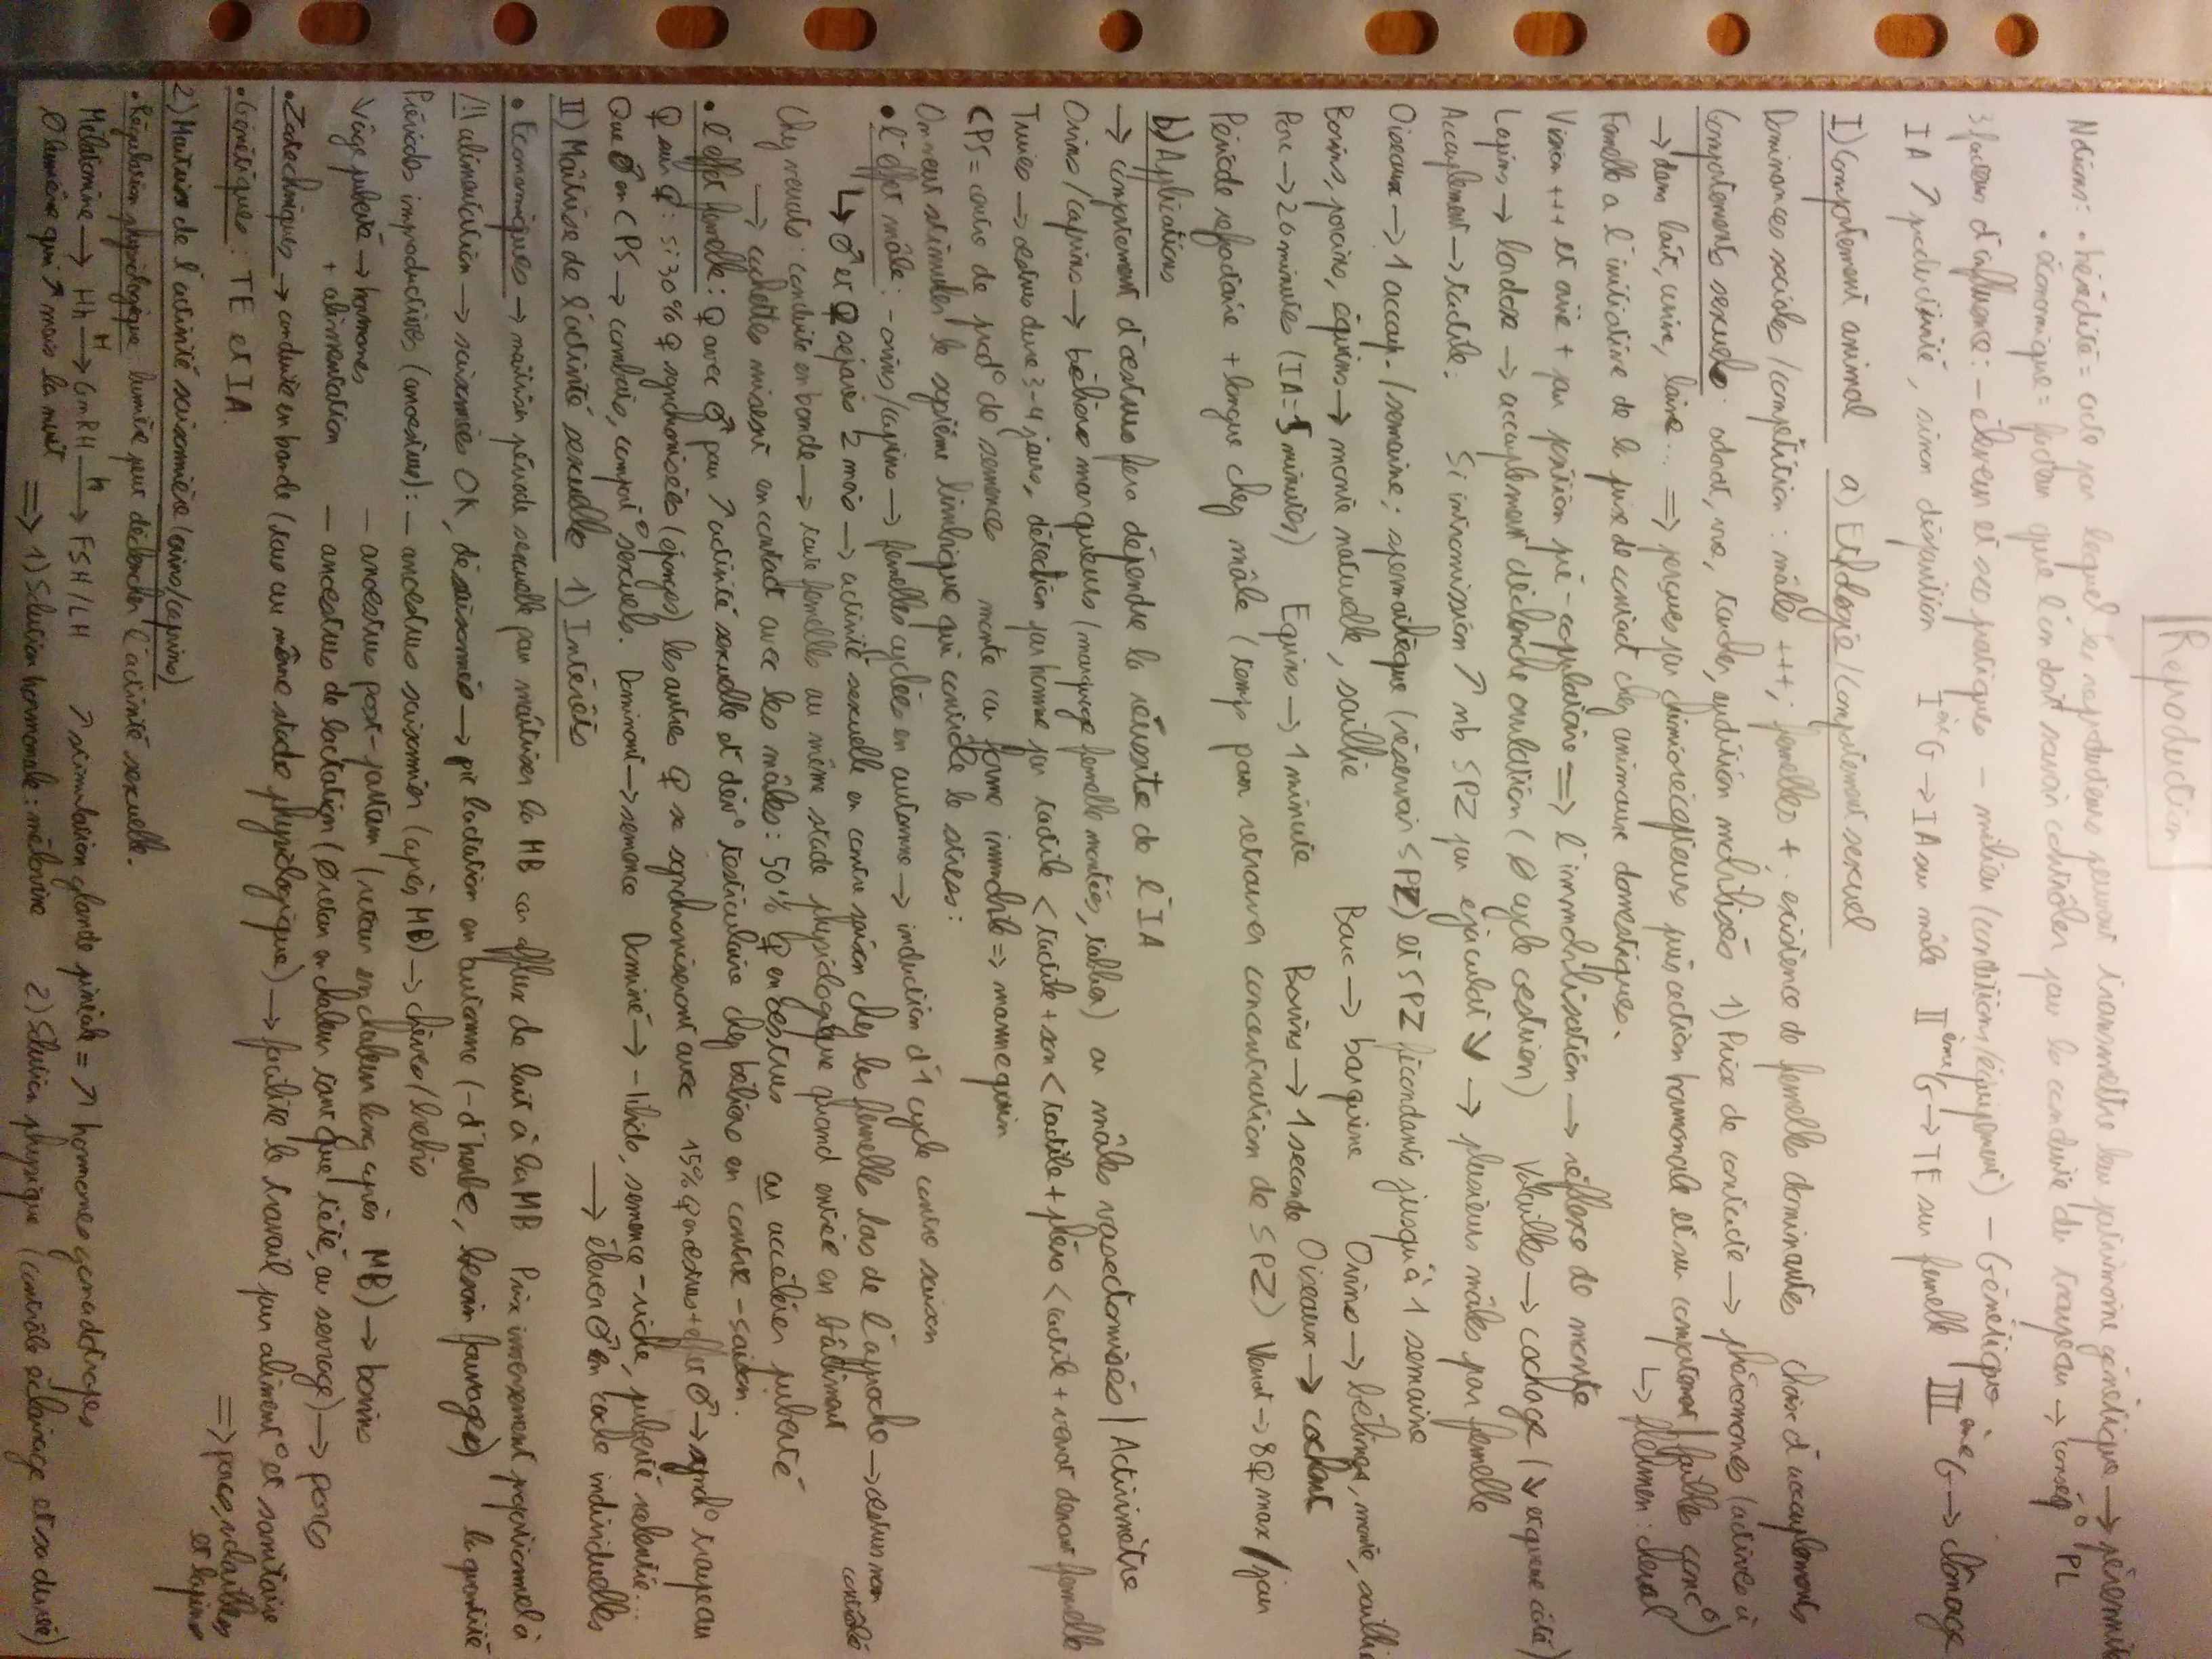 Reproduction
Notions: • hérédité = acte par lequel les reproducteurs peuvent transmettre leur patrimoine génétique → pérennité
• économique = facteur que l'on doit savoir contrôler par la conduite du troupeau → conséq° PL
3 facteurs d'influence: - éleveur et ses pratiques - milieu (conditions/équipement) - Génétique.
IA ↗ productivité, sinon disparition Ière G → IA sur mâle IIème G → TE sur femelle IIIème G → clônage
I) Comportement animal a) Ethologie/Comportement sexuel
Dominances sociales/compétition: mâles +++; femelles +; existence de femelles dominantes Choix d'accouplements
Comportements sexuels: odorat, vue, toucher, audition mobilisés 1) Prise de contacte → phéromones (actives à
→ dans lait, urine, laine... ⇒ perçues par chimiorécepteurs puis action hormonale et sur comportement | faibles conc°)
↳ flehmen: cheval
Femelle a l'initiative de la prise de contact chez animaux domestiques.
Vision +++ et ouïe + par position pré-copulatoire ⇒ l'immobilisation → réflexe de monte
Lapins → lordose → accouplement déclenche ovulation (Ø cycle oestrien) Volailles → cochage (↘ et queue côté)
Accouplement → tactile. Si intromission ↗ nb SPZ par éjaculat ↘ → plusieurs mâles par femelle
Oiseaux → 1 accoup./semaine; spermathèque (réservoir SPZ) et SPZ fécondants jusqu'à 1 semaine
Bovins, porcins, équins → monte naturelle, saillie Bouc → bouquine Ovins → bélinage, monte, saillie
Porc → 20 minutes (IA = 5 minutes) Equins → 1 minute Bovins → 1 seconde Oiseaux → cochent
Période refractaire + longue chez mâle (temps pour retrouver concentration de SPZ) Verrat → 8♀ max/jour
b) Applications
→ comportement d'oestrus fera dépendre la réussite de l'IA
Ovins/caprins → béliers marqueurs (marquage femelle montées, tablier) ou mâles vasectomisés | Activimètre
Truies → oestrus dure 3-4 jours, détection par homme par tactile < tactile + son < tactile + phéro < tactile + verrat devant femelle
CPS = centre de prod° de semences monte car forme immobile ⇒ mannequin
On veut stimuler le système limbique qui contrôle le stress:
• l'effet mâle: - ovins/caprins → femelles cyclées en automne → induction d'1 cycle contre saison
↳ ♂ et ♀ séparés 2 mois → activité sexuelle en contre saison chez les femelles lors de l'approche → oestrus non contrôlé
Chez verrats: conduite en bande → toute femelles au même stade physiologique quand entrée en bâtiment
→ cochettes misent en contact avec les mâles: 50% ♀ en oestrus ou accélérer puberté
• l'effet femelle: ♀ avec ♂ pour ↗ activité sexuelle et dév° testiculaire chez béliers en contre-saison.
♀ sur ♀: si 30% ♀ synchronisées (éponges) les autres ♀ se synchroniseront avec 15% ♀ en oestrus + effet ♂ → synch° troupeau
Que ♂ en CPS → combats, comport° sexuels. Dominant → semence Dominé → - libido, semence - riche, puberté ralentie...
→ élever ♂ en individuelles
II) Maîtrise de l'activité sexuelle 1) Intérêts
• Economiques → maitriser période sexuelle pour maîtriser la MB car afflux de lait à la MB Prix inversement proportionnel à
/!\ alimentation → saisonnées OK, désaisonnés → pic lactation en automne (- d'herbe, besoin fourrages) la quantité
Périodes improductives (anoestrus): - anoestrus saisonnier (après MB) → chèvres/brebis
↘ âge puberté → hormones - anoestrus post-partum (retour en chaleur long après MB) → bovins
+ alimentation - anoestrus de lactation (Ø retour en chaleur tant que tété, ou sevrage) → porcs
• Zootechniques → conduite en bande (tous au même stade physiologique) → facilite le travail pour aliment° et sanitaire
• Génétiques: TE et IA. ⇒ porcs, volailles et lapins
2) Maitrise de l'activité saisonnière (ovins/caprins)
• Régulation physiologique lumière peut déclencher l'activité sexuelle.
Mélatonine → Hh →M GnRH →H FSH/LH ↗ stimulation glande pinéale = ↗ hormones gonadotropes
Ø lumière qui ↗ mais la nuit ⇒ 1) Solution hormonale: mélovine 2) Solution physique (contrôle éclairage et sa durée)